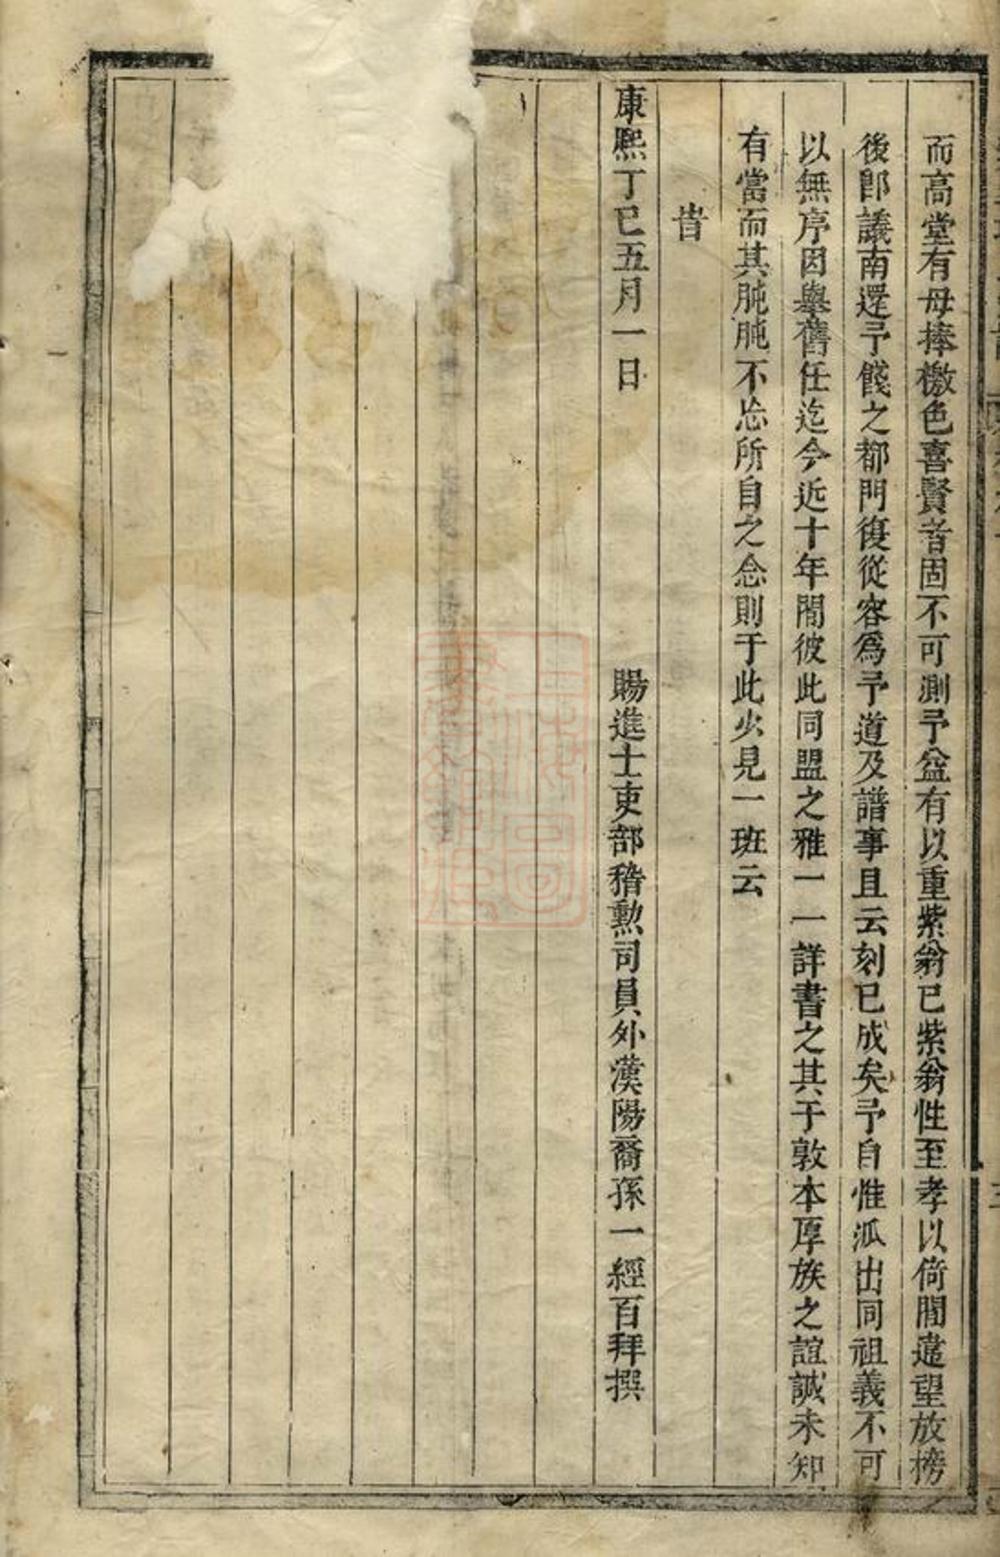 而高堂有母捧檄色喜賢者固不可測予益有以重紫翁已紫翁性至孝以倚閭遑望放榜
後即議南還予餞之都門復從容爲予道及譜事且云刻已成矣予自惟派出同祖義不可
以無序因舉舊任迄今近十年間彼此同盟之雅一一詳書之其于敦本厚族之誼誠未知
有當而其肫肫不忘所自之念則于此少見一班云
旹
康熙丁巳五月一日
賜進士吏部稽勲司員外漢陽裔孫一經百拜撰